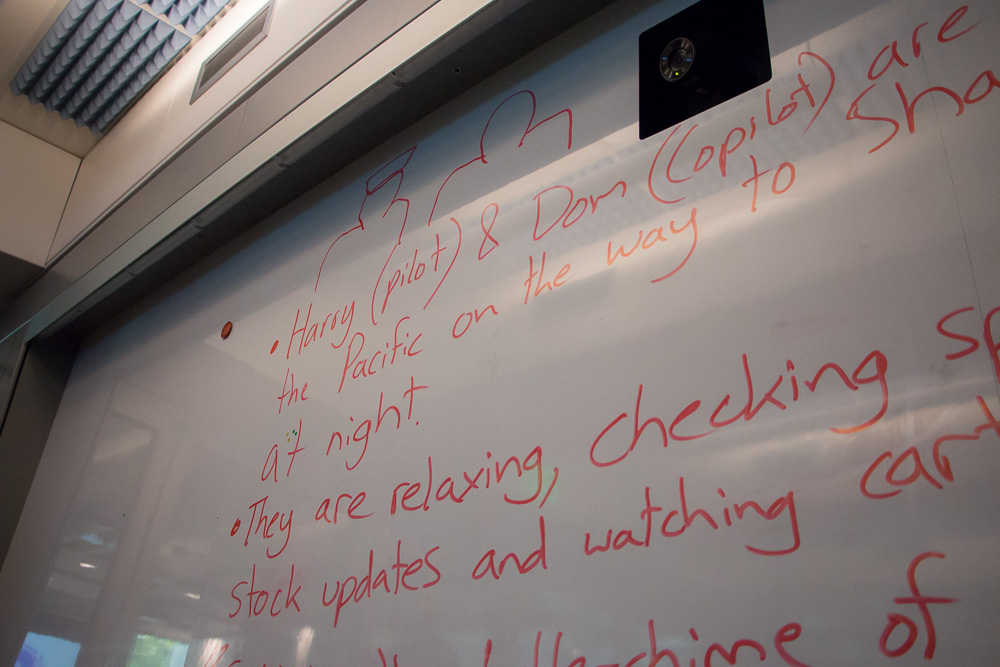 • Harry (pilot) & Dom (copilot) are
the Pacific on the way to
at night.
• They are relaxing, checking
stock updates and watching
of